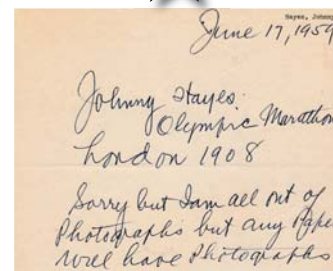 Hayes, Johnny
June 17, 1959
Johnny Hayes
Olympic Marathon
London 1908
Sorry but I am all out of
Photographs but any Pape
will have Photographs